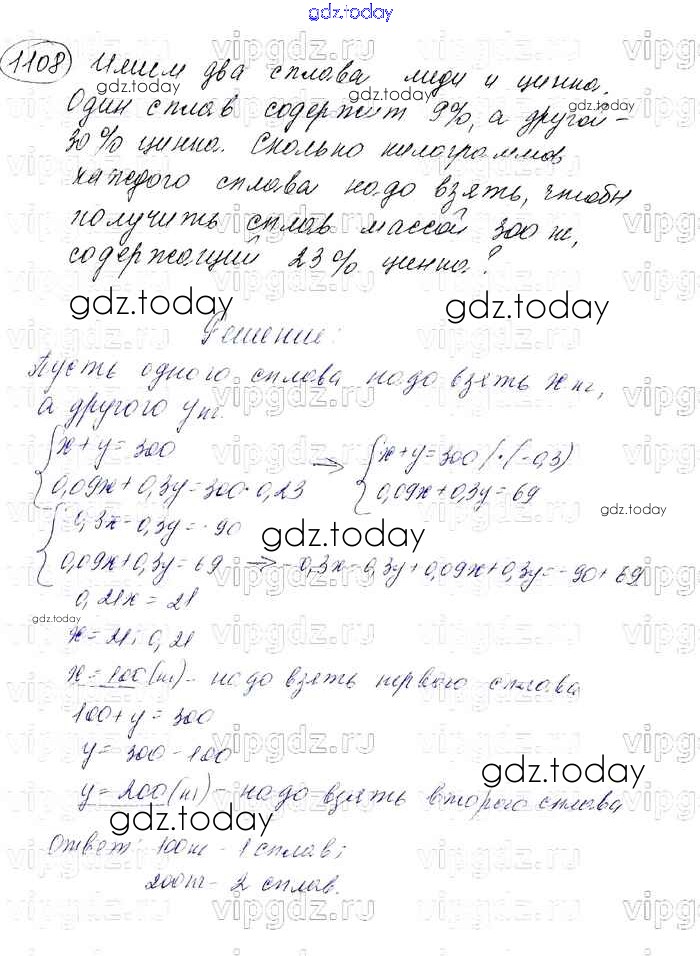 gdz.today
gdz.today
1108 Имеем два сплава меди и цинка.
Один сплав содержит 9%, а другой –
30% цинка. Сколько килограммов
каждого сплава надо взять, чтобы
получить сплав массой 300 кг,
содержащий 23% цинка?
gdz.today gdz.today
Решение:
Пусть одного сплава надо взять x кг,
а другого y кг.
{ x + y = 300 → { x + y = 300 / · (-0,3)
0,09x + 0,3y = 300 · 0,23 0,09x + 0,3y = 69
{ -0,3x - 0,3y = -90
0,09x + 0,3y = 69 → -0,3x - 0,3y + 0,09x + 0,3y = -90 + 69
0,21x = 21
x = 21 : 0,21
x = 100 (кг) - надо взять первого сплава
100 + y = 300
y = 300 - 100
y = 200 (кг) - надо взять второго сплава
Ответ: 100 кг - 1 сплав;
200 кг - 2 сплав.
gdz.today
vipgdz.ru